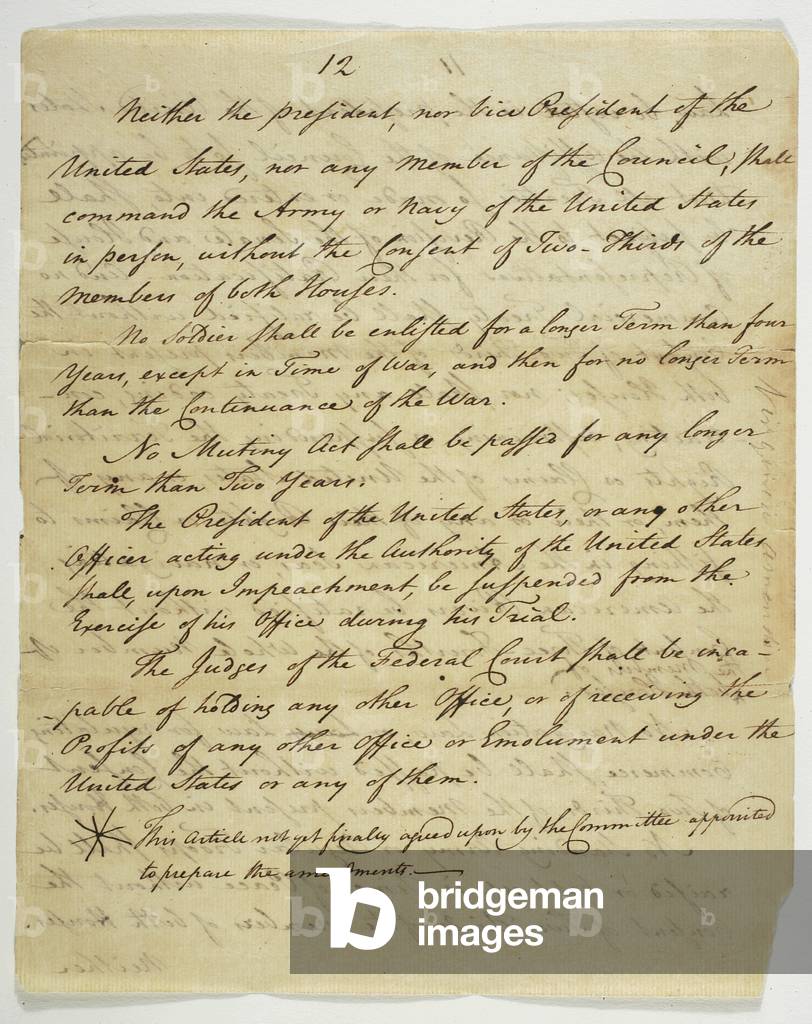 12
Neither the president, nor Vice President of the
United States, nor any member of the Council, shall
command the Army or Navy of the United States
in person, without the Consent of Two-Thirds of the
members of both Houses.
No Soldier shall be enlisted for a longer Term than four
Years, except in Time of War, and then for no longer Term
than the Continuance of the War.
No Mutiny Act shall be passed for any longer
Term than Two Years.
The President of the United States, or any other
Officer acting under the Authority of the United States
shall, upon Impeachment, be suspended from the
Exercise of his Office during his Trial.
The Judges of the Federal Court shall be inca-
-pable of holding any other Office, or of receiving the
Profits of any other Office or Emolument under the
United States or any of them.
* This Article not yet finally agreed upon by the Committee appointed
to prepare the amendments.
bridgeman
images